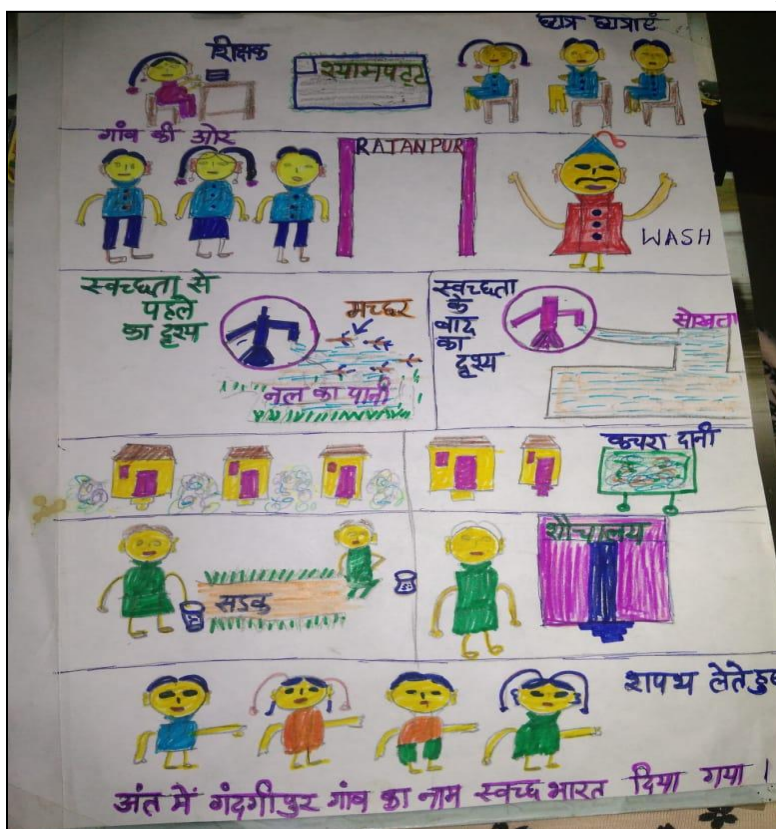 शिक्षक
श्यामपट्ट
छात्र छात्राएं
गांव की ओर
RATANPUR
WASH
स्वच्छता से
पहले
का दृश्य
मच्छर
नल का पानी
स्वच्छता
के
बाद
का
दृश्य
सोखता
कचरा दानी
सडक
शौचालय
शपथ लेते हुए
अंत में गंदगीपुर गांव का नाम स्वच्छ भारत दिया गया।